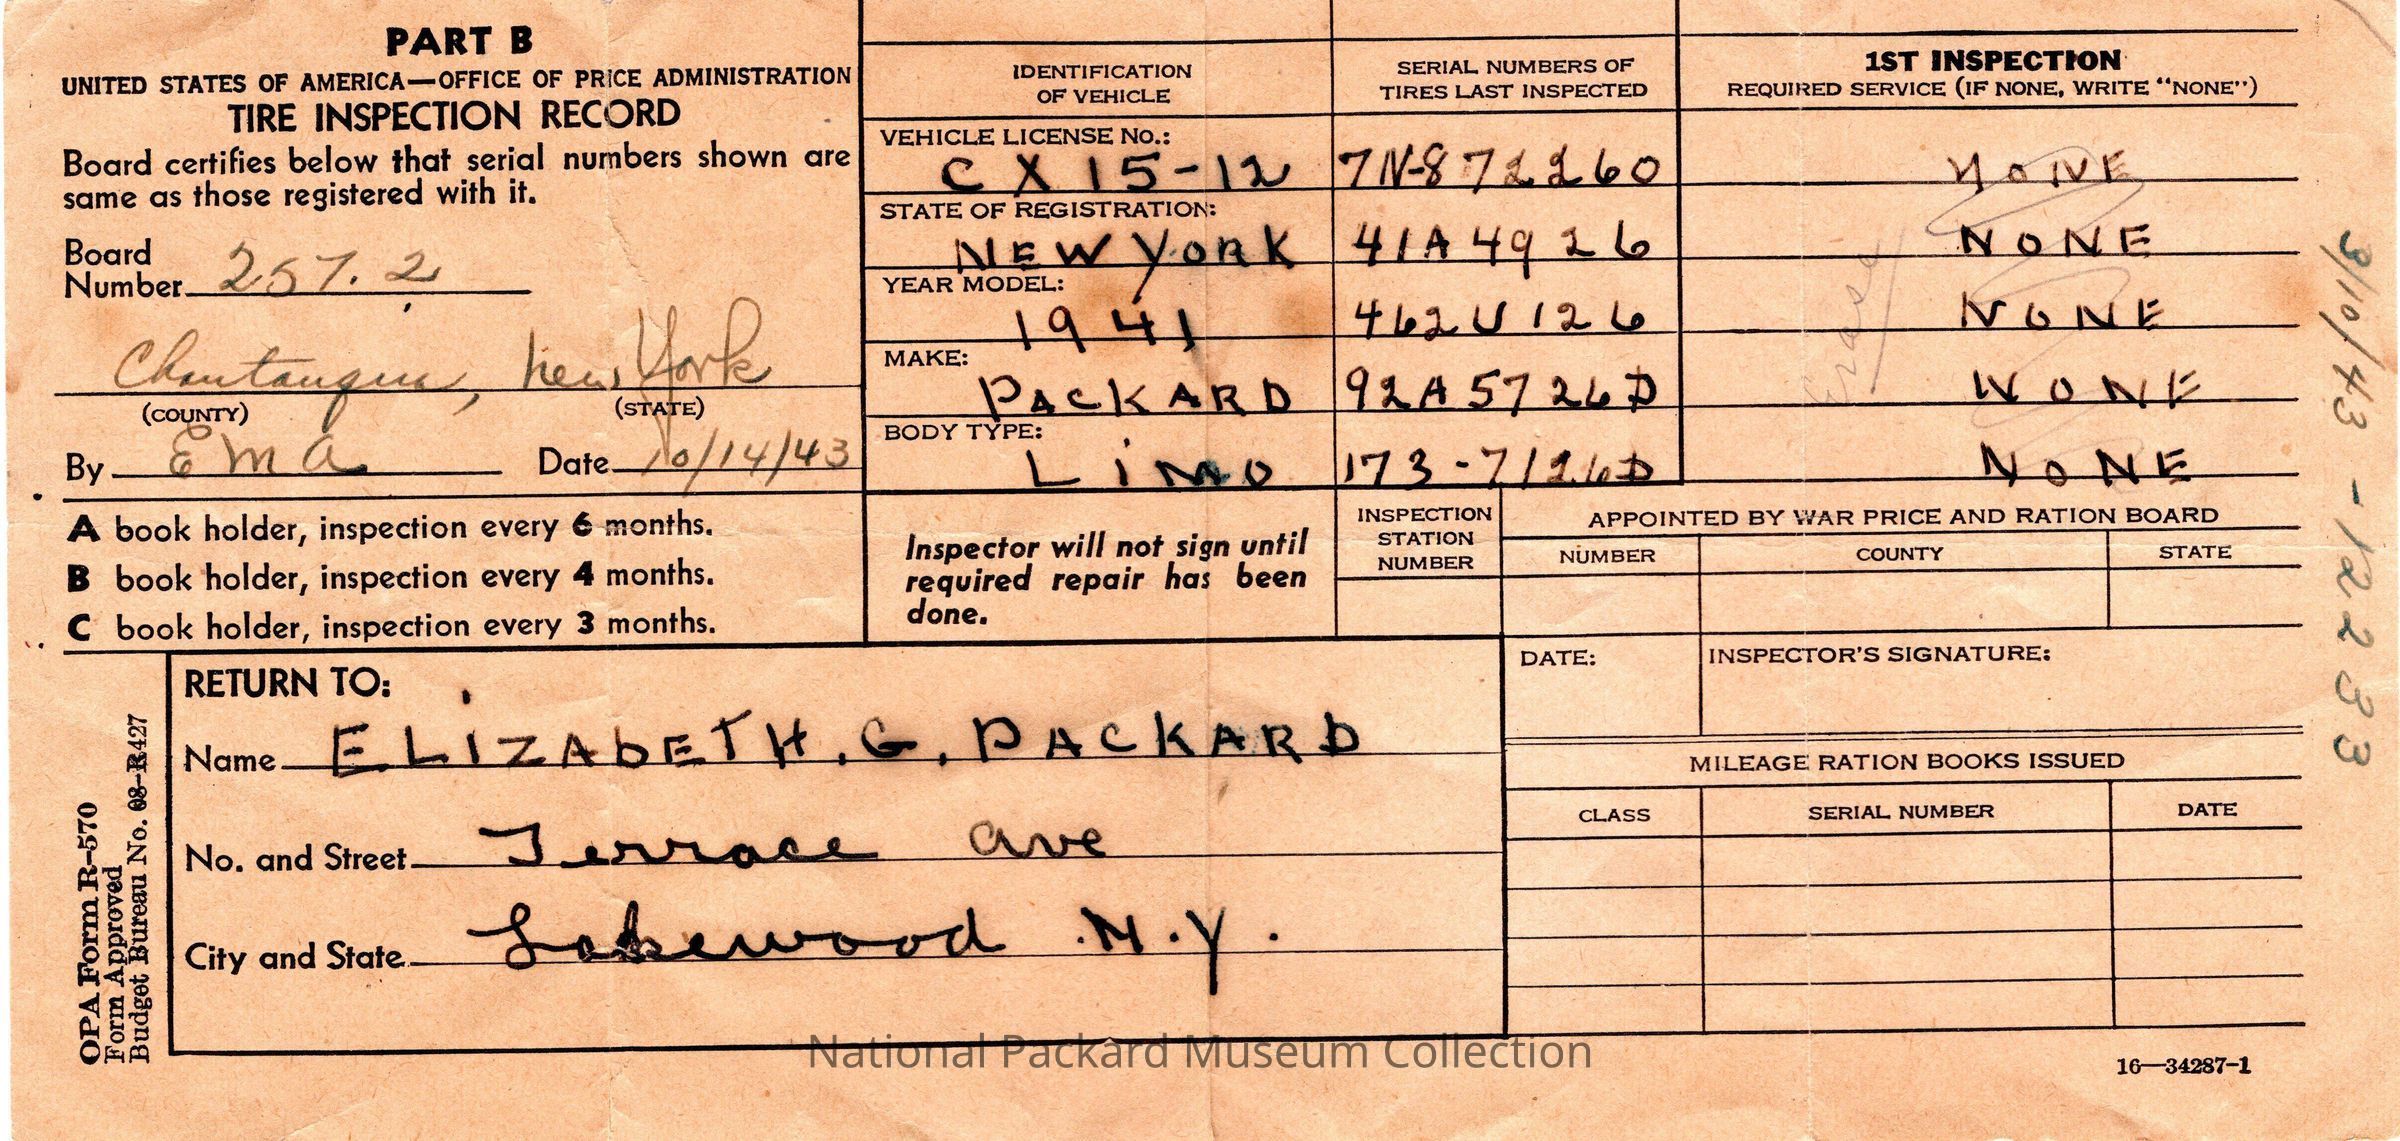 PART B
UNITED STATES OF AMERICA—OFFICE OF PRICE ADMINISTRATION
TIRE INSPECTION RECORD
Board certifies below that serial numbers shown are
same as those registered with it.
Board
Number 257.2
Chautauqua, New York
(COUNTY) (STATE)
By EMA Date 10/14/43
A book holder, inspection every 6 months.
B book holder, inspection every 4 months.
C book holder, inspection every 3 months.
IDENTIFICATION
OF VEHICLE
VEHICLE LICENSE No.:
CX 15-12
STATE OF REGISTRATION:
NEW YORK
YEAR MODEL:
1941
MAKE:
PACKARD
BODY TYPE:
LIMO
SERIAL NUMBERS OF
TIRES LAST INSPECTED
7N-872260
41A4926
462U126
92A5726D
173-7126D
1ST INSPECTION
REQUIRED SERVICE (IF NONE, WRITE "NONE")
NONE
NONE
NONE
NONE
NONE
Erase
3/10/43-12233
Inspector will not sign until
required repair has been
done.
INSPECTION
STATION
NUMBER
APPOINTED BY WAR PRICE AND RATION BOARD
NUMBER COUNTY STATE
DATE: INSPECTOR'S SIGNATURE:
MILEAGE RATION BOOKS ISSUED
CLASS SERIAL NUMBER DATE
RETURN TO:
Name ELIZABETH. G. PACKARD
No. and Street Terrace Ave
City and State Lakewood N.Y.
OPA Form R-570
Form Approved
Budget Bureau No. 08-R427
National Packard Museum Collection
16—34287-1